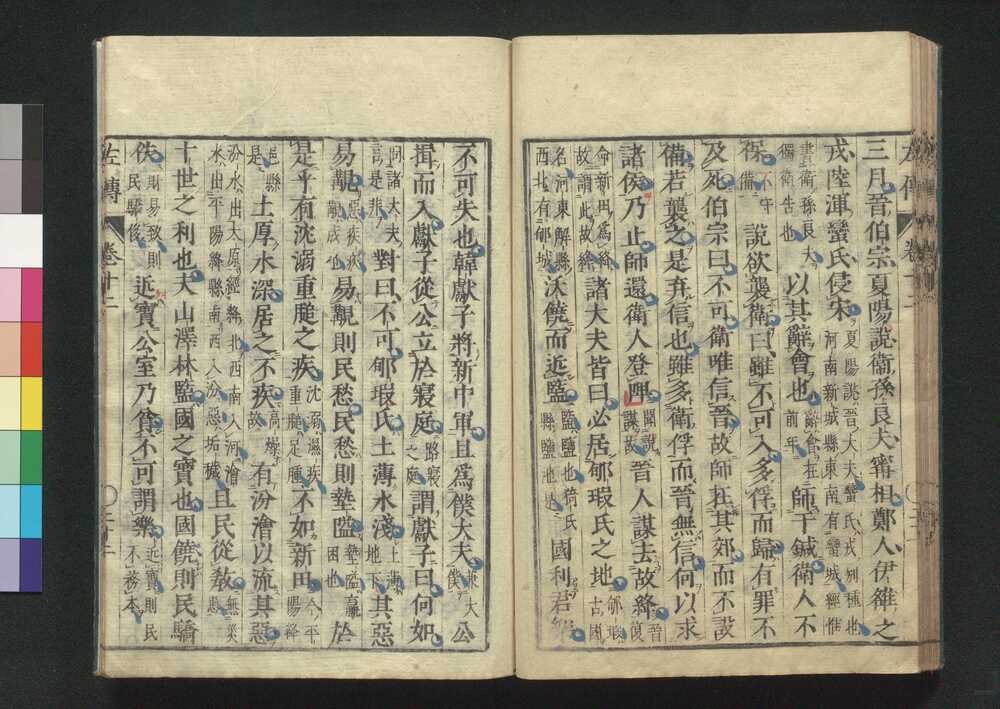 三月晉伯宗夏陽說衞孫良夫甯相鄭人伊雒之
戎陸渾蠻氏侵宋夏陽說晉大夫蠻氏戎別種也河南新城縣東南有蠻城經惟
書衞孫良夫獨衞告也以其辭會也辭會在前年師于鍼衞人不
保不守備說欲襲衞曰雖不可入多俘而歸有罪不
及死伯宗曰不可衞唯信晉故師在其郊而不設
備若襲之是弃信也雖多衞俘而晉無信何以求
諸侯乃止師還衞人登陴聞說謀故晉人謀去故絳晉復
命新田爲絳故謂此故絳諸大夫皆曰必居郇瑕氏之地郇瑕古國
名河東解縣西北有郇城沃饒而近盬盬鹽也猗氏縣鹽池是國利君樂
不可失也韓獻子將新中軍且爲僕大夫兼大僕公
揖而入獻子從公立於寢庭路寢之庭謂獻子曰何如
問諸大夫言是非對曰不可郇瑕氏土薄水淺土薄地下其惡
易覯惡疾疢覯成也易覯則民愁民愁則墊隘墊隘羸困也於
是乎有沈溺重膇之疾沈溺濕疾重膇足腫不如新田今平陽絳
邑縣是土厚水深居之不疾高燥故有汾澮以流其惡
汾水出太原經絳北西南入河澮水出平陽絳縣南西入汾惡垢穢且民從教無災患
十世之利也夫山澤林盬國之寶也國饒則民驕
佚財易致則民驕侈近寶公室乃貧不可謂樂近寶則民不務本
左傳
卷十二